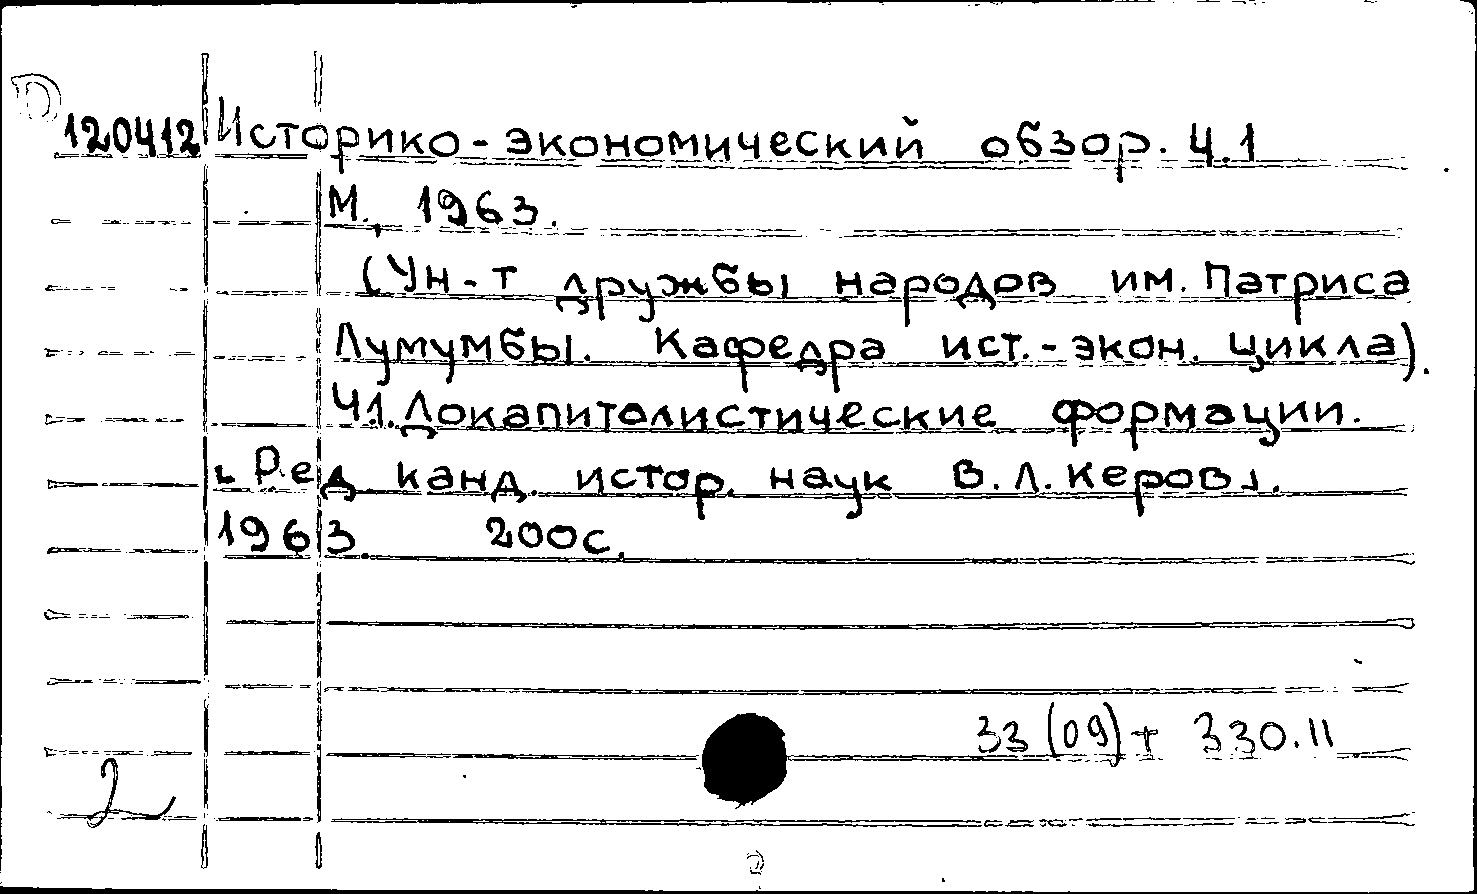 D
120412 Историко-экономический обзор. Ч.1
М., 1963.
(Ун-т дружбы народов им. Патриса
Лумумбы. Кафедра ист.-экон. цикла).
Ч.1. Докапиталистические формации.
[Ред. канд. истор. наук В.Л. Керов].
1963. 200с.
33(09)+ 330.11
2